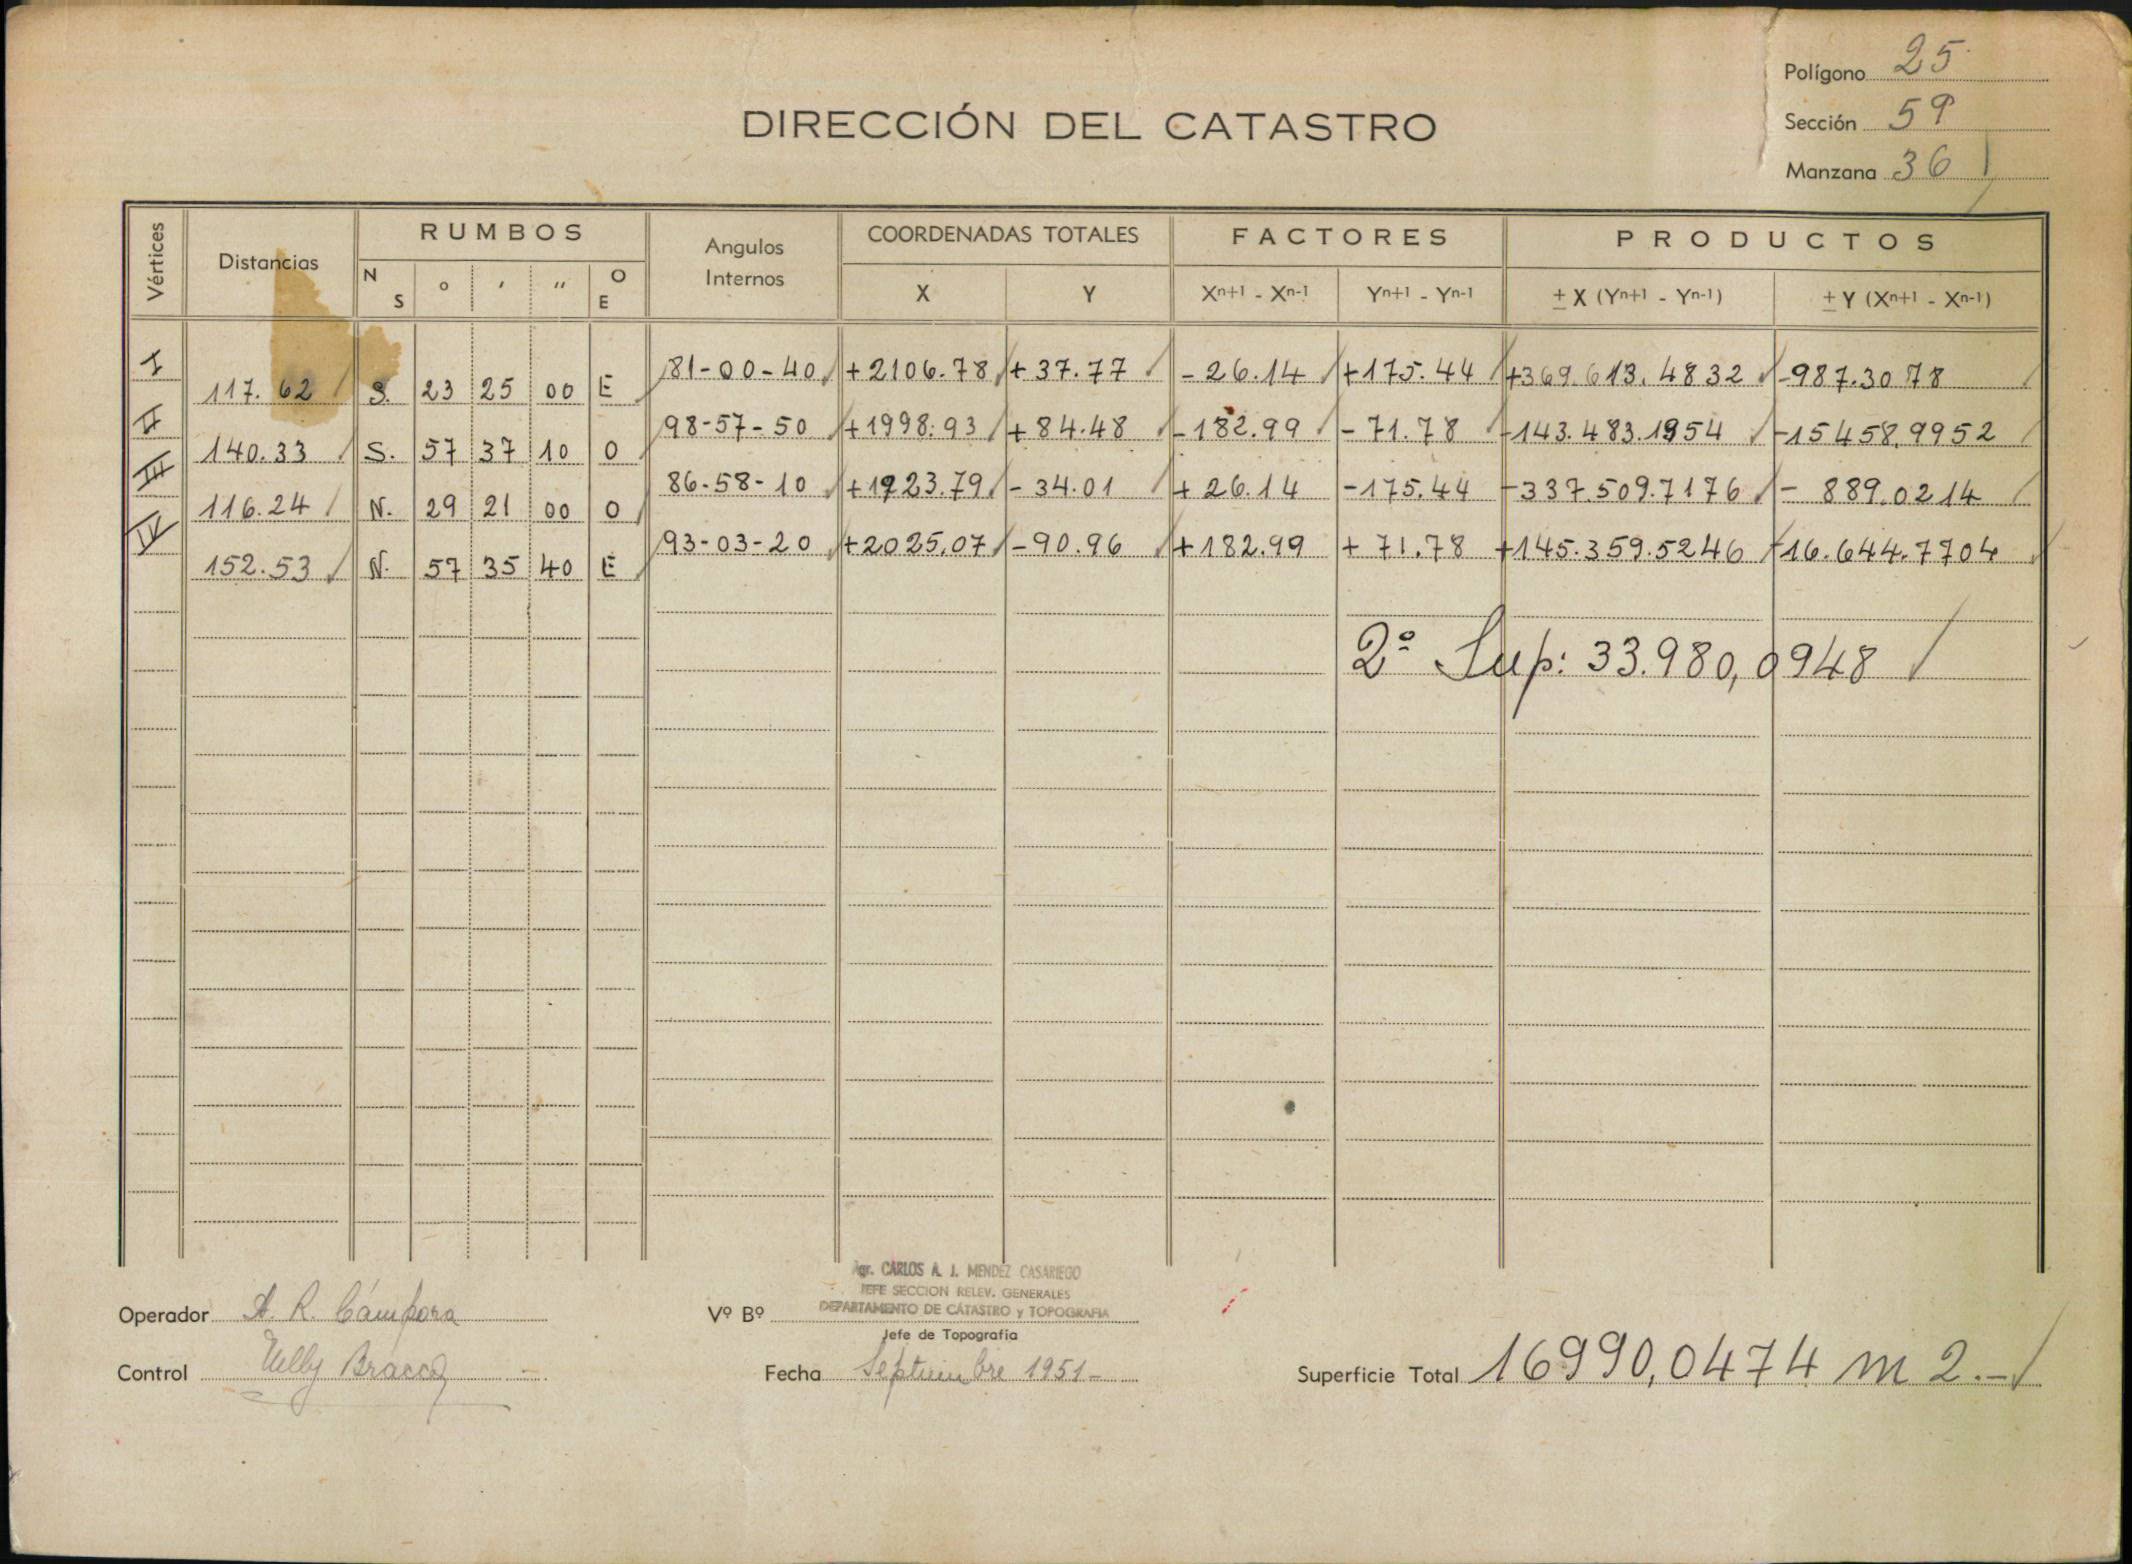 Polígono 25
Sección 59
Manzana 36
DIRECCIÓN DEL CATASTRO
Vértices Distancias RUMBOS Angulos Internos COORDENADAS TOTALES FACTORES PRODUCTOS
N S ° ' " O E X Y Xn+1 - Xn-1 Yn+1 - Yn-1 ± X (Yn+1 - Yn-1) ± Y (Xn+1 - Xn-1)
I 81-00-40 +2106.78 +37.77 -26.14 +175.44 +369.613.4832 -987.3078
117.62 S. 23 25 00 E
II 98-57-50 +1998.93 +84.48 -182.99 -71.78 -143.483.1954 -15458,9952
140.33 S. 57 37 10 O
III 86-58-10 +1923.79 -34.01 +26.14 -175.44 -337.509.7176 - 889.0214
116.24 N. 29 21 00 O
IV 93-03-20 +2025,07 -90.96 +182.99 + 71.78 +145.359.5246 -16.644.7704
152.53 N. 57 35 40 E
2º Sup: 33.980,0948
Agr. CARLOS A. J. MENDEZ CASARIEGO
JEFE SECCION RELEV. GENERALES
DEPARTAMENTO DE CATASTRO y TOPOGRAFIA
Operador A. R. Cámpora Vº Bº
Jefe de Topografía
Control Nelly Bracco Fecha Septiembre 1951- Superficie Total 16990,0474 m 2.-